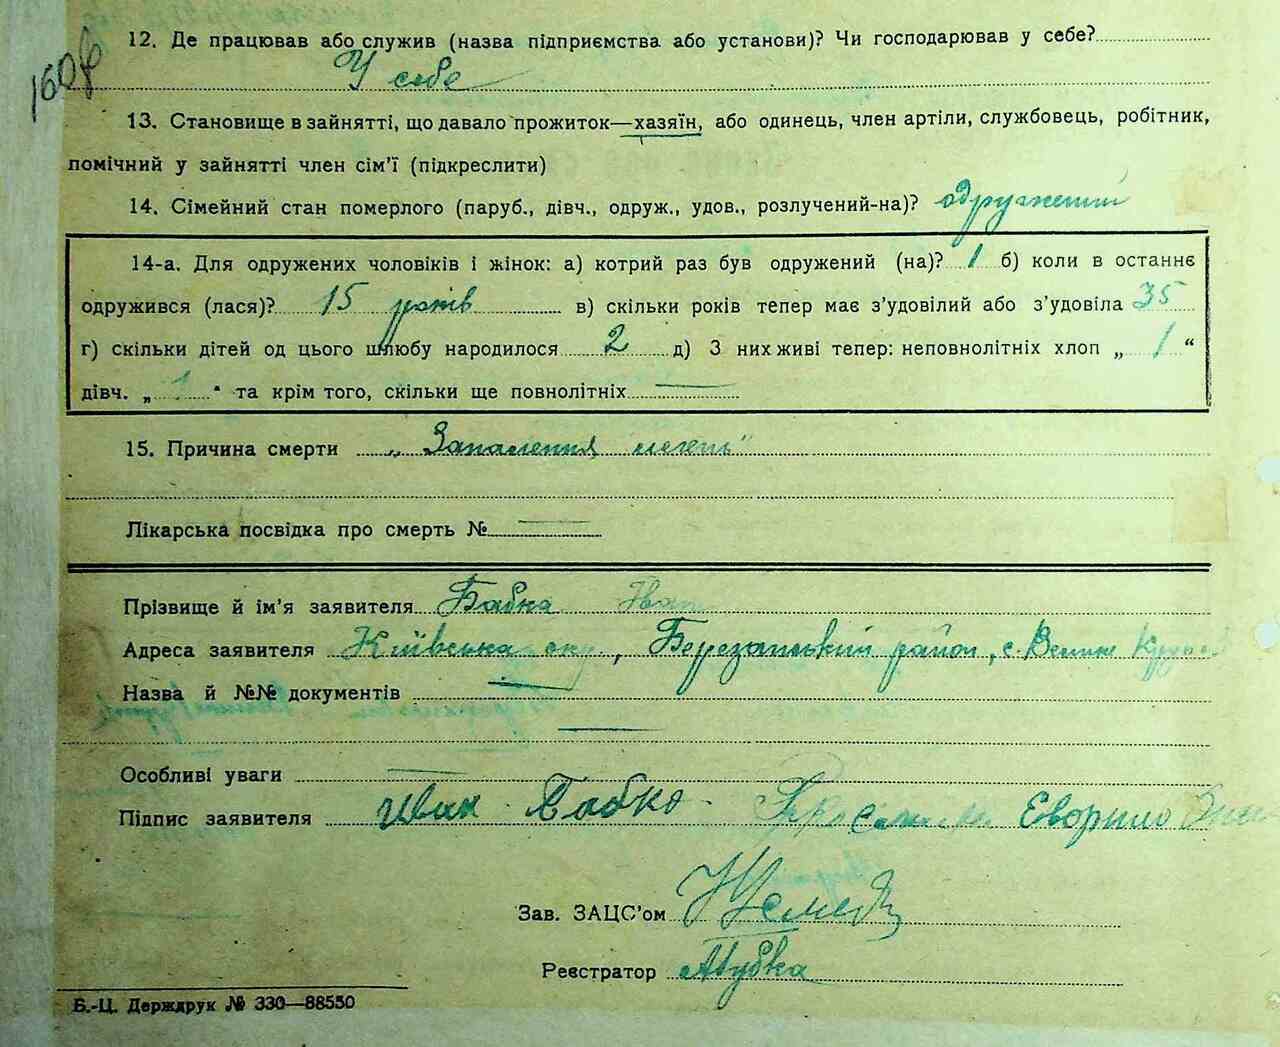 160
12. Де працював або служив (назва підприємства або установи)? Чи господарював у себе?
У себе
13. Становище в зайнятті, що давало прожиток—хазяїн, або одинець, член артіли, службовець, робітник,
помічний у зайнятті член сім'ї (підкреслити)
14. Сімейний стан померлого (паруб., дівч., одруж., удов., розлучений-на)? одружений
14-а. Для одружених чоловіків і жінок: а) котрий раз був одружений (на)? 1 б) коли в останнє
одружився (лася)? 15 років в) скільки років тепер має з'удовілий або з'удовіла 35
г) скільки дітей од цього шлюбу народилося 2 д) З них живі тепер: неповнолітніх хлоп „ 1 “
дівч. „ 1 “ та крім того, скільки ще повнолітніх —
15. Причина смерти „Запалення легень"
Лікарська посвідка про смерть № —
Прізвище й ім'я заявителя Бабка Іван
Адреса заявителя Київська окр, Березанський район, с. Велика
Назва й №№ документів —
Особливі уваги —
Підпис заявителя Иван Бабко
Зав. ЗАЦС'ом
Реєстратор
Б.-Ц. Держдрук № 330—88550